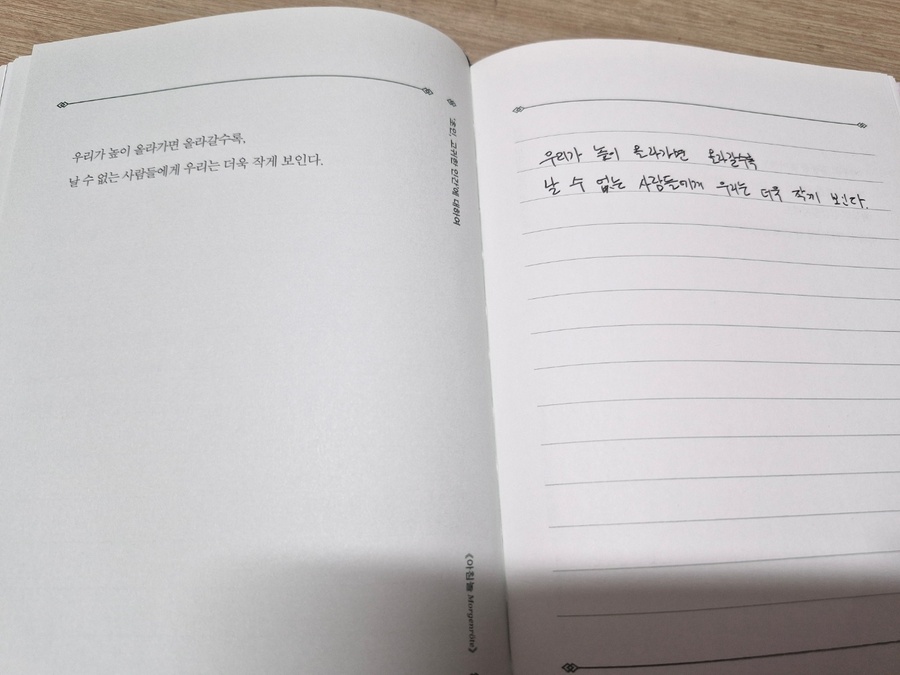 우리가 높이 올라가면 올라갈수록,
날 수 없는 사람들에게 우리는 더욱 작게 보인다.
초인, 고귀한 인간에 대하여
《아침놀 Morgenröte》
우리가 높이 올라가면 올라갈수록
날 수 없는 사람들에게 우리는 더욱 작게 보인다.